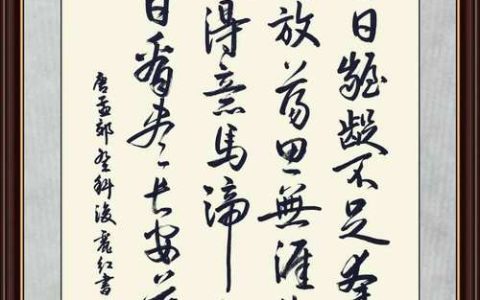 日齷齪不足夸
放蕩思無涯
得意馬蹄
日看尽長安花
唐孟郊登科後 麗红書